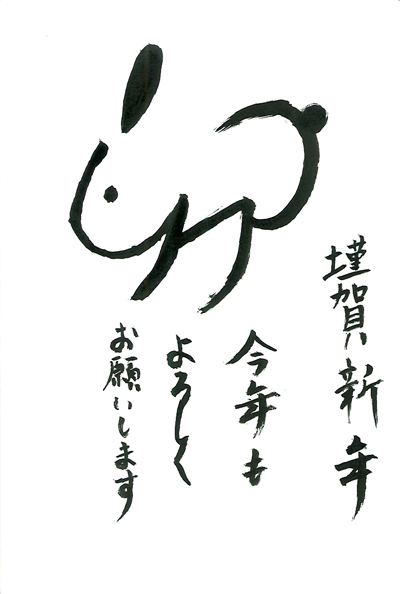 謹賀新年
今年も
よろしく
お願いします